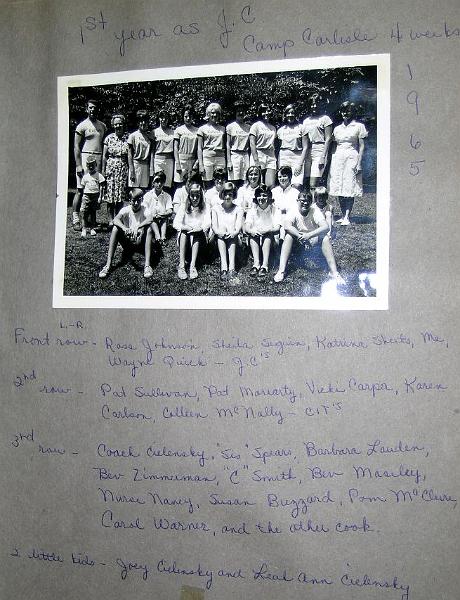 1st year as J.C
Camp Carlisle 4 weeks
1
9
6
5
L.-R.
Front row - Ross Johnson, Sheila Seguin, Katrina Sheets, Me,
Wayne Quick - J.C's
2nd row - Pat Sullivan, Pat Moriarty, Vicki Carpa, Karen
Carlson, Colleen McNally - CIT'S
3rd row - Coach Cielensky, "Sis" Spears, Barbara Lauden,
Bev Zimmerman, "C" Smith, Bev Maseley,
Nurse Nancy, Susan Buzzard, Pam McClure,
Carol Warner, and the other cook.
2 little kids - Joey Cielensky and Leah Ann Cielensky